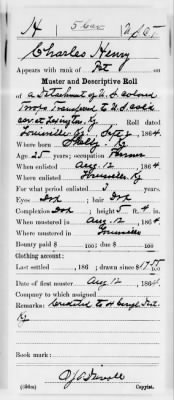 H 5 Cav. U.S.C.T.
Charles Henry
Appears with rank of Pvt on
Muster and Descriptive Roll
of a Detachment of U.S. Colored
Troops Transferred to U.S. Cold
Cav at Lexington, Ky
Roll dated
Louisville Ky, Sept 1, 1864.
Where born Shelby, Ky
Age 25 years; occupation Farmer
When enlisted Aug. 12, 1864.
Where enlisted Louisville, Ky
For what period enlisted 3 years.
Eyes Drk; hair Drk
Complexion Drk; height 5 ft. 4 in.
When mustered in Aug 12, 1864.
Where mustered in Louisville
Bounty paid $ 100; due $ 100
Clothing account:
Last settled , 186 ; drawn since $
Date of first muster Aug 12, 1864.
Company to which assigned
Remarks: Credited to 4 Congl Dist.
Ky
Book mark:
Copyist.